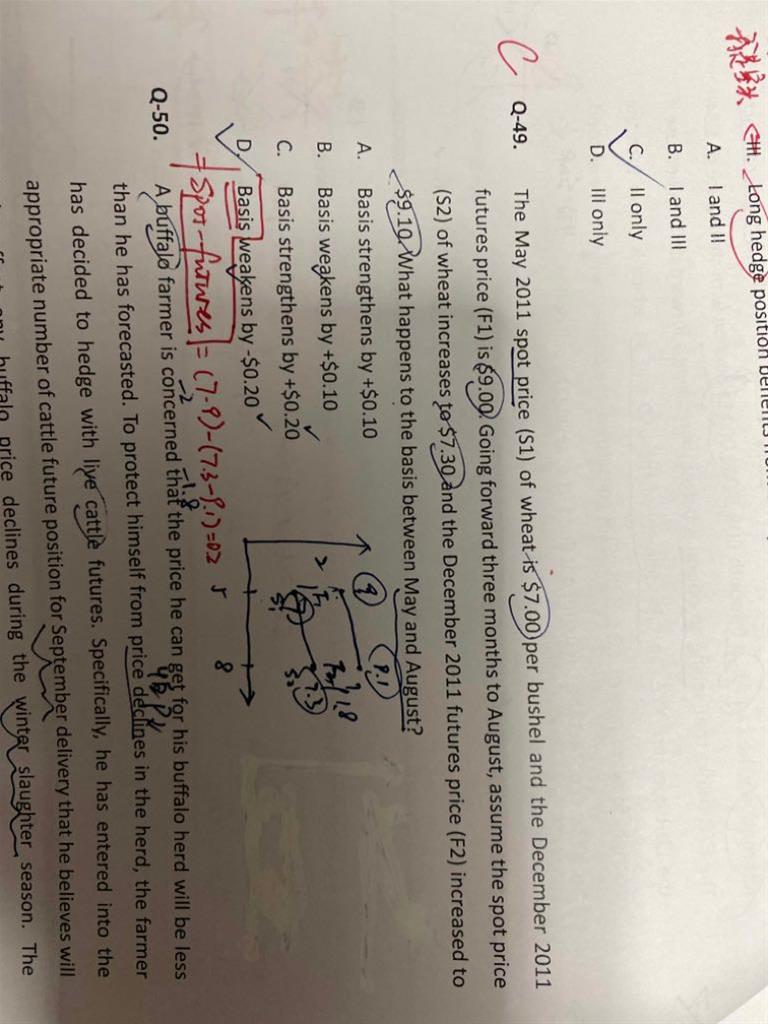 Long hedge position
A. I and II
B. I and III
C. II only
D. III only
C
Q-49. The May 2011 spot price (S1) of wheat is $7.00 per bushel and the December 2011
futures price (F1) is $9.00. Going forward three months to August, assume the spot price
(S2) of wheat increases to $7.30 and the December 2011 futures price (F2) increased to
$9.10. What happens to the basis between May and August?
A. Basis strengthens by +$0.10
B. Basis weakens by +$0.10
C. Basis strengthens by +$0.20
D. Basis weakens by -$0.20
9
9.1
2
F1
F2
1.8
7
S1
7.3
S2
5
8
= Spot-futures = (7-9)-(7.3-9.1)=0.2
-2
-1.8
Q-50. A buffalo farmer is concerned that the price he can get for his buffalo herd will be less
than he has forecasted. To protect himself from price declines in the herd, the farmer
has decided to hedge with live cattle futures. Specifically, he has entered into the
appropriate number of cattle future position for September delivery that he believes will
buffalo price declines during the winter slaughter season. The